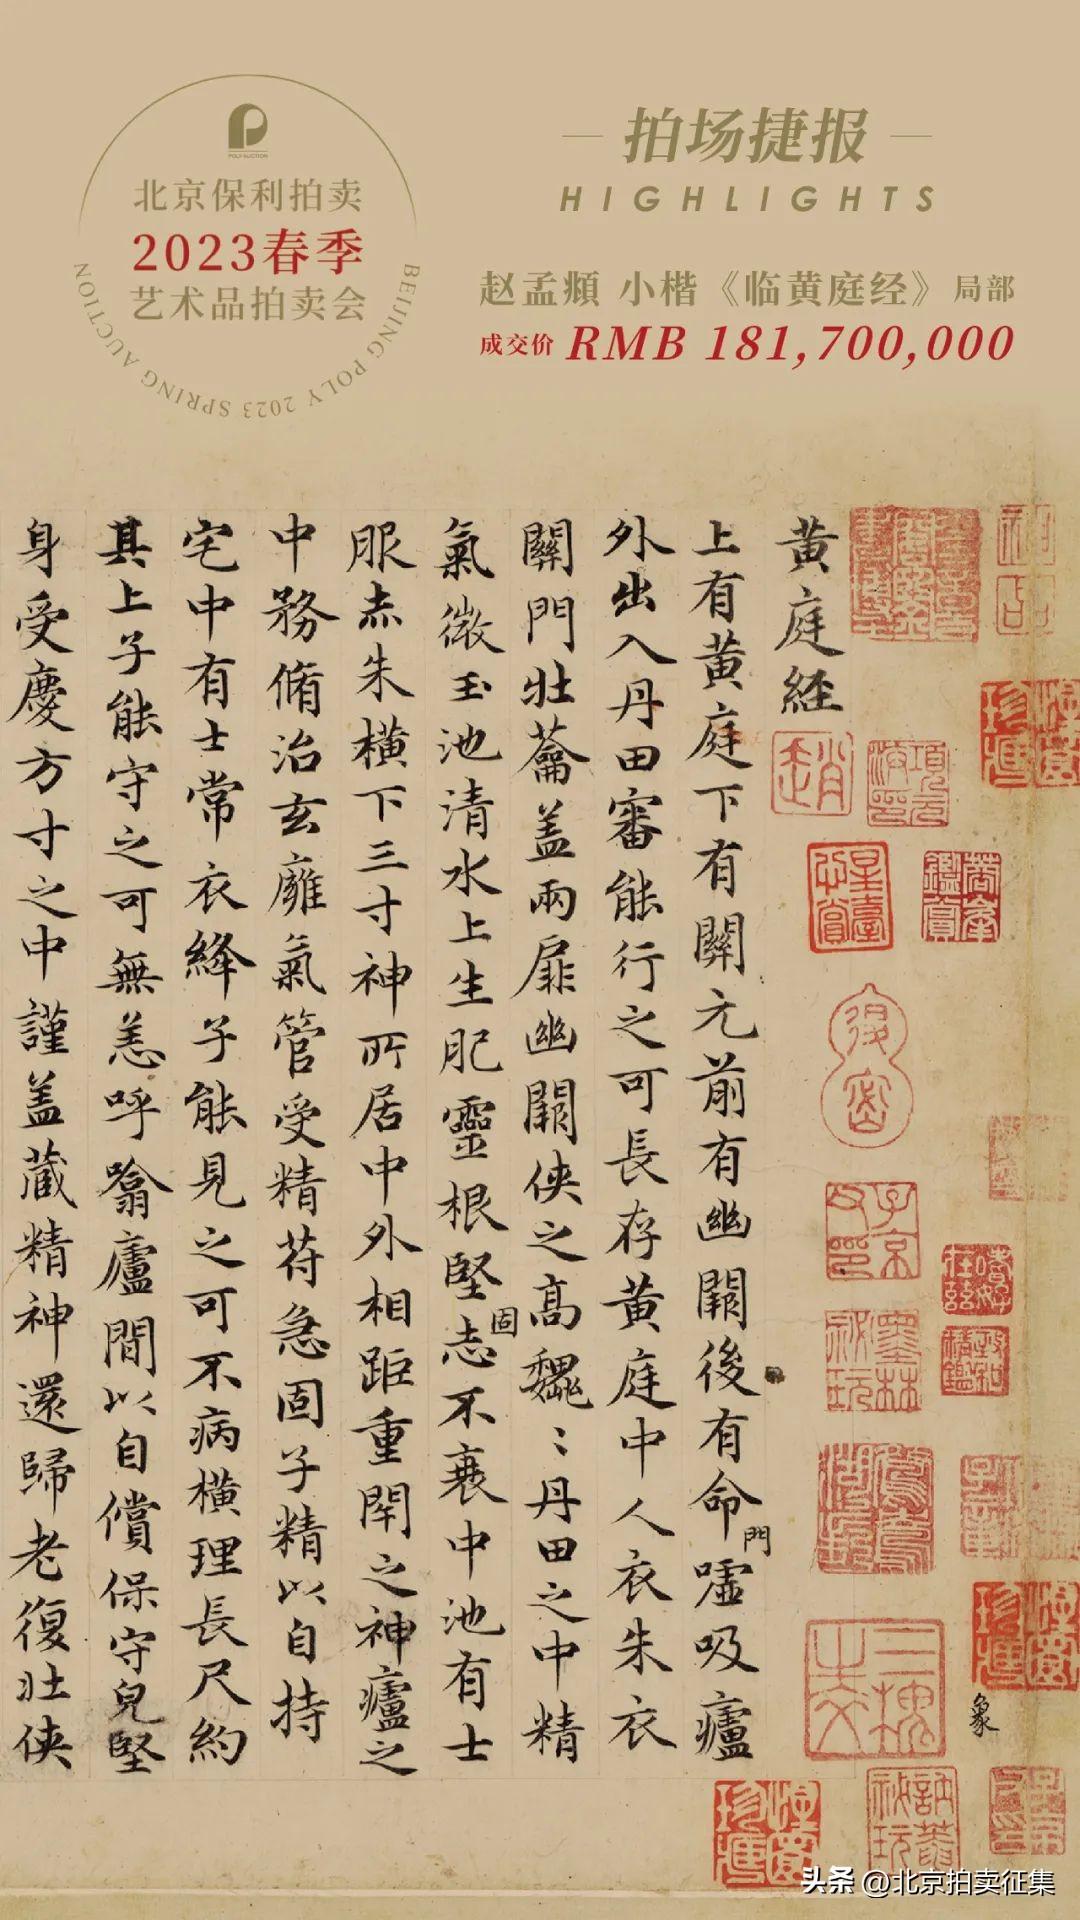 POLY AUCTION
北京保利拍卖
2023春季
艺术品拍卖会
BEIJING POLY 2023 SPRING AUCTION
拍场捷报
HIGHLIGHTS
赵孟頫 小楷《临黄庭经》局部
成交价 RMB 181,700,000
黄庭經
上有黄庭下有關元前有幽闕後有命門嘘吸廬
外出入丹田審能行之可長存黄庭中人衣朱衣
關門壯蘥盖兩扉幽闕侠之高巍〻丹田之中精
氣微玉池清水上生肥靈根堅固志不衰中池有士
服赤朱横下三寸神所居中外相距重閉之神廬之
中務脩治玄廱氣管受精苻急固子精以自持
宅中有士常衣絳子能見之可不病横理長尺約
其上子能守之可無恙呼噏廬間以自償保守皃堅
身受慶方寸之中謹盖藏精神還歸老復壯侠
趙
項元汴印
蕉林鑑賞
星臺心賞
子京父印
墨林祕玩
象
头条 @北京拍卖征集